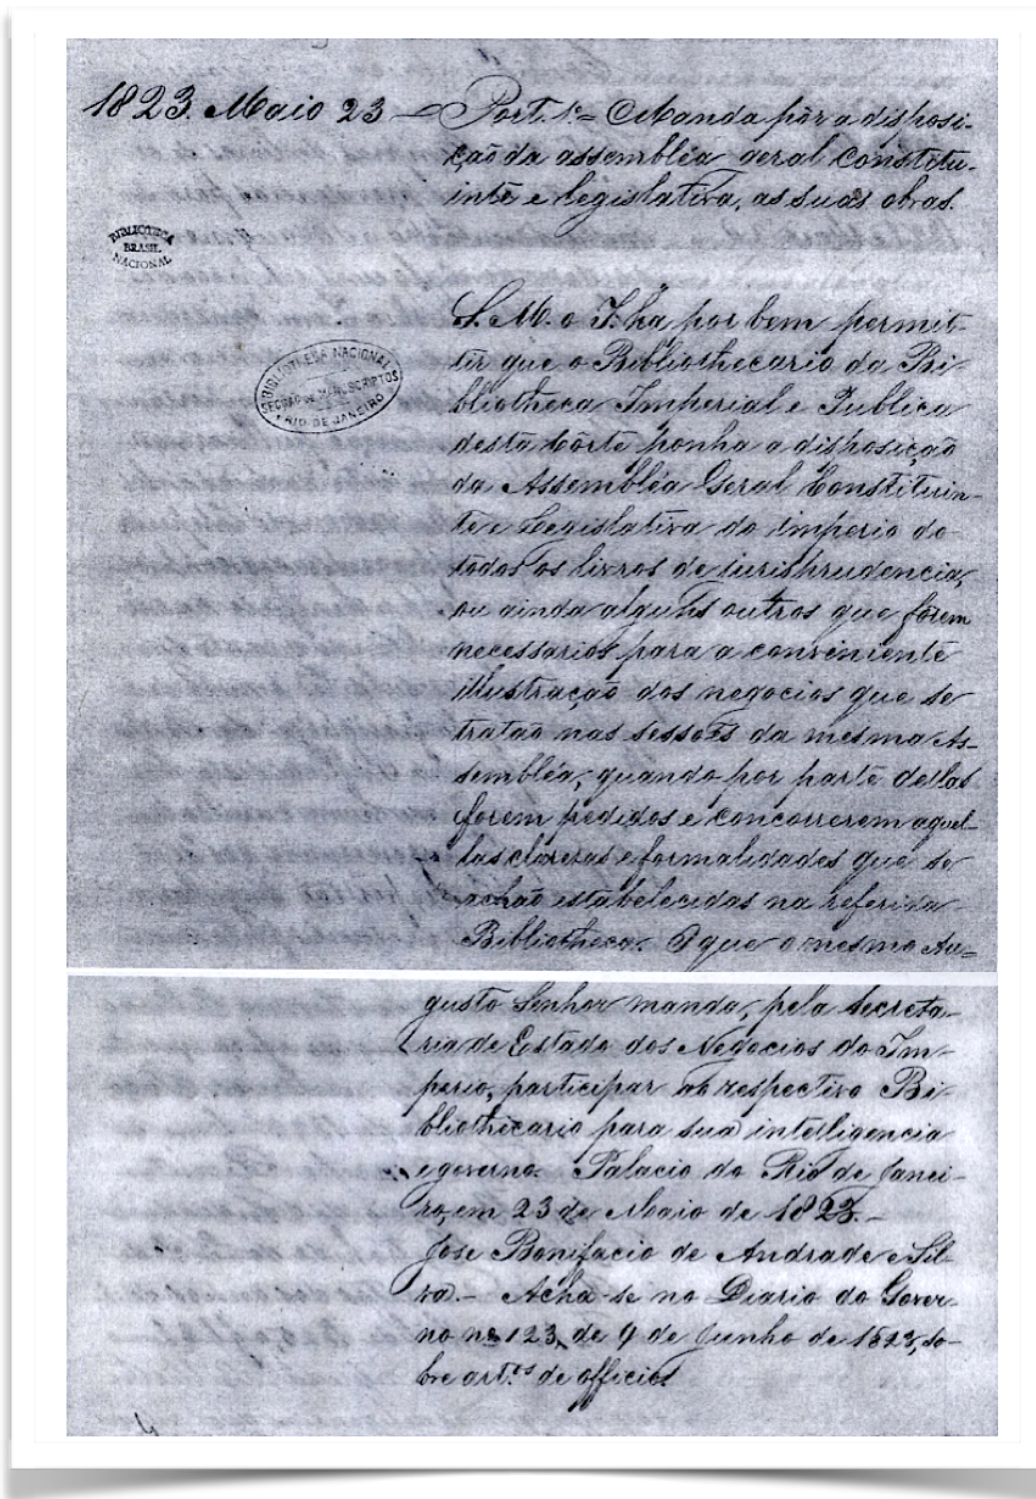 1823. Maio 23 — Port. 1ª = Manda pôr a disposi-
ção da assembléa geral constitu-
inte e legislativa, as suas obras.
BIBLIOTECA
BRASIL
NACIONAL
S. M. o I. ha por bem permit-
tir que o Bibliothecario da Bi-
bliotheca Imperial e Publica
desta Côrte ponha a disposição
da Assembléa Geral Constituin-
te e Legislativa do imperio do
todos os livros de jurisprudencia,
ou ainda alguns outros que fôrem
necessarios para a conveniente
illustração dos negocios que se
tratão nas sessões da mesma As-
sembléa, quando por parte dellas
forem pedidos e concorrerem aquel-
las clarezas e formalidades que se
achão estabelecidas na referida
Bibliotheca. O que o mesmo Au-
BIBLIOTHECA NACIONAL
SECÇÃO DE MANUSCRIPTOS
RIO DE JANEIRO
gusto Senhor manda, pela secreta-
ria de Estado dos Negocios do Im-
perio, participar ao respectivo Bi-
bliothecario para sua intelligencia
e governo. Palacio do Rio de Janei-
ro, em 23 de Maio de 1823.—
José Bonifacio de Andrade e Sil-
va.— Acha-se no Diario do Gover-
no nº 123, de 9 de Junho de 1823, so-
bre art.ºˢ de officios